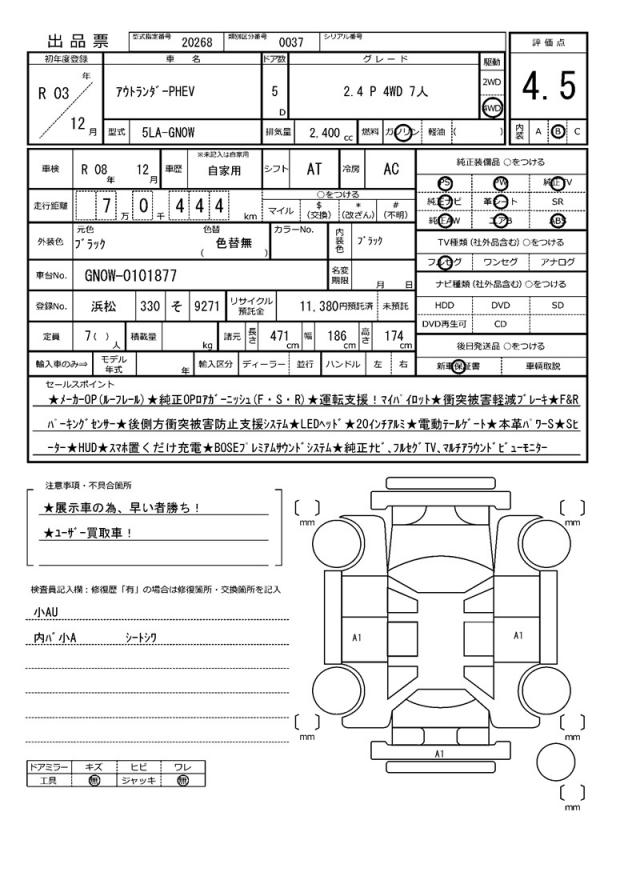 出品票 型式指定番号 20268 類別区分番号 0037 シリアル番号
評価点
4.5
初年度登録 車名 ドア数 グレード 駆動
R 03 年 12 月
アウトランダーPHEV 5 D 2.4 P 4WD 7人 2WD 4WD
型式 5LA-GN0W 排気量 2,400 cc 燃料 ガソリン 軽油 ( )
内装 A B C
車検 R 08 年 12 月 車歴 ※未記入は自家用 自家用 シフト AT 冷房 AC
純正装備品 ○をつける
PS PW 純正TV
純正ナビ 革シート SR
純正AW エアB ABS
走行距離 7 万 0 千 4 4 4 km
○をつける
マイル $(交換) *(改ざん) #(不明)
TV種類(社外品含む)○をつける
フルセグ ワンセグ アナログ
外装色 元色 ブラック 色替 ( 色替無 ) カラーNo. 内装色 ブラック
ナビ種類(社外品含む)○をつける
車台No. GN0W-0101877 名変期限 月 日
HDD DVD SD
DVD再生可 CD
登録No. 浜松 330 そ 9271 リサイクル預託金 11,380円預託済 未預託
定員 7( ) 人 積載量 kg 諸元 長さ 471 cm 幅 186 cm 高さ 174 cm
後日発送品 ○をつける
新車保証書 車輌取説
輸入車のみ⇒ モデル年式 年 輸入区分 ディーラー 並行 ハンドル 左 右
セールスポイント
★メーカーOP(ルーフレール)★純正OPロアガーニッシュ(F・S・R)★運転支援!マイパイロット★衝突被害軽減ブレーキ★F&R
パーキングセンサー★後側方衝突被害防止支援システム★LEDヘッド★20インチアルミ★電動テールゲート★本革パワーS★Sヒ
ーター★HUD★スマホ置くだけ充電★BOSEプレミアムサウンドシステム★純正ナビ、フルセグTV、マルチアラウンドビューモニター
注意事項・不具合箇所
★展示車の為、早い者勝ち!
★ユーザー買取車!
検査員記入欄:修復歴「有」の場合は修復箇所・交換箇所を記入
小AU
内パ小A シートシワ
mm
mm
A1
A1
mm
mm
A1
mm
ドアミラー キズ ヒビ ワレ
工具 無 ジャッキ 無